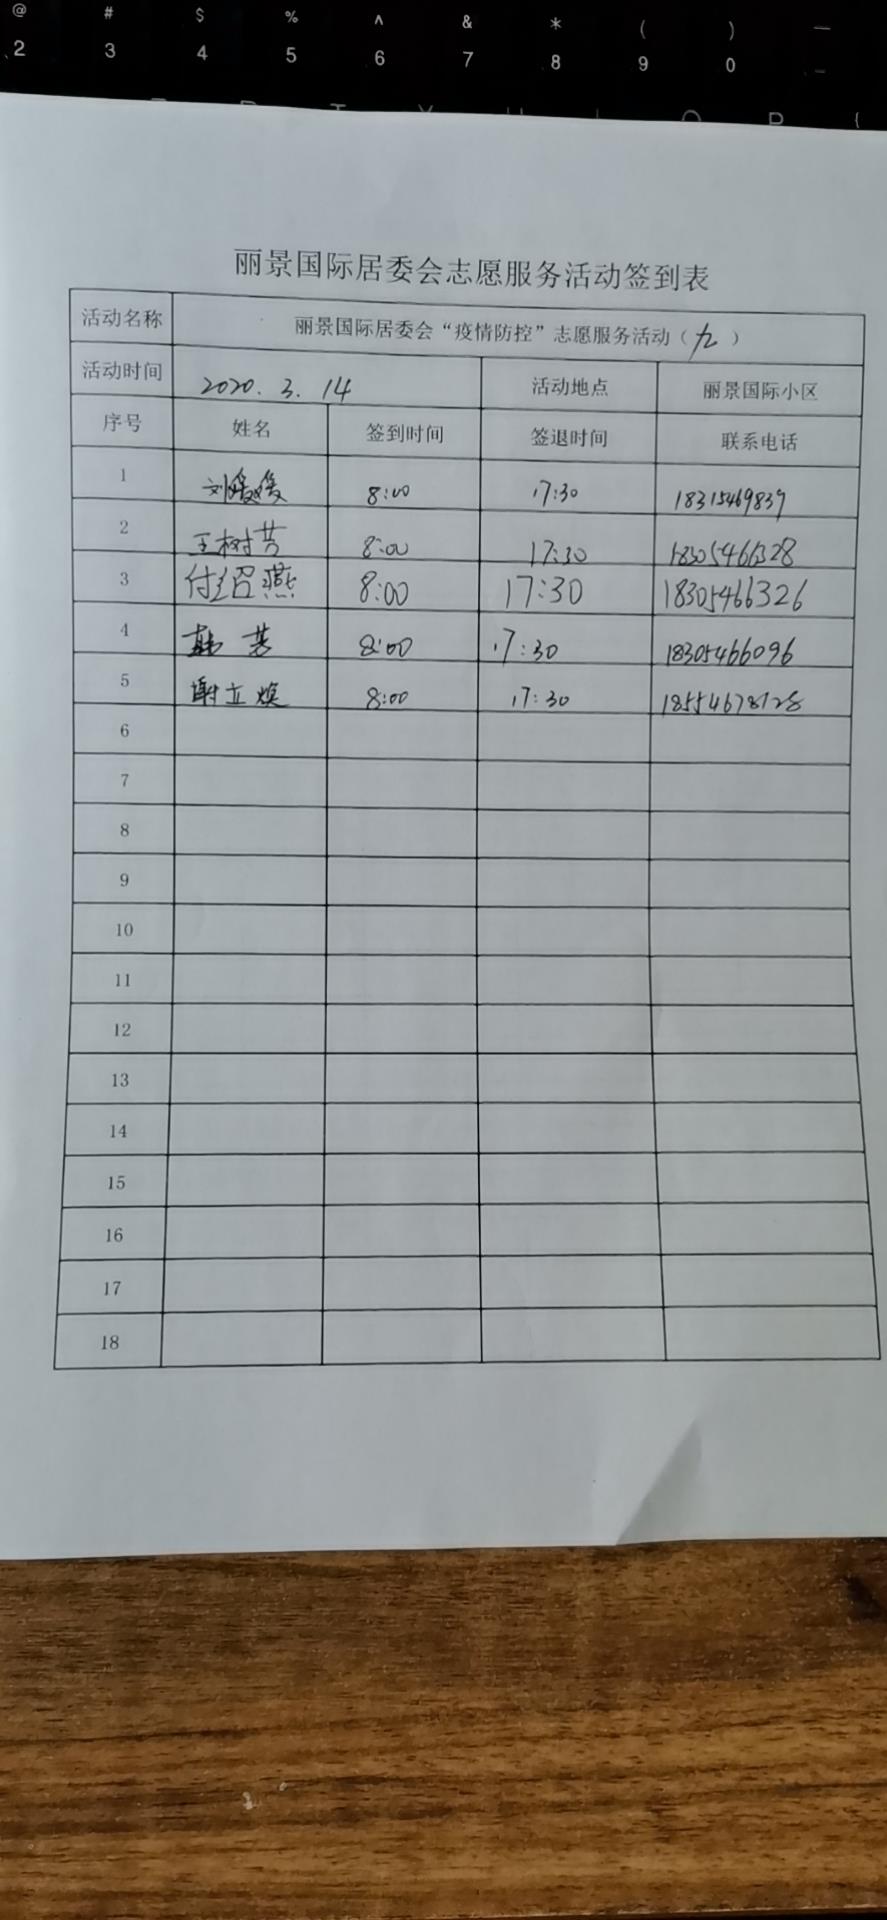 @ # $ % ^ & * ( ) —
2 3 4 5 6 7 8 9 0 -
丽景国际居委会志愿服务活动签到表
活动名称 丽景国际居委会“疫情防控”志愿服务活动（九）
活动时间 2020.3.14 活动地点 丽景国际小区
序号 姓名 签到时间 签退时间 联系电话
1 刘媛媛 8:00 17:30 18315469839
2 王树芳 8:00 17:30 18305466328
3 付绍燕 8:00 17:30 18305466326
4 韩 8:00 17:30 18305466096
5 谢立焕 8:00 17:30 18554678128
6
7
8
9
10
11
12
13
14
15
16
17
18